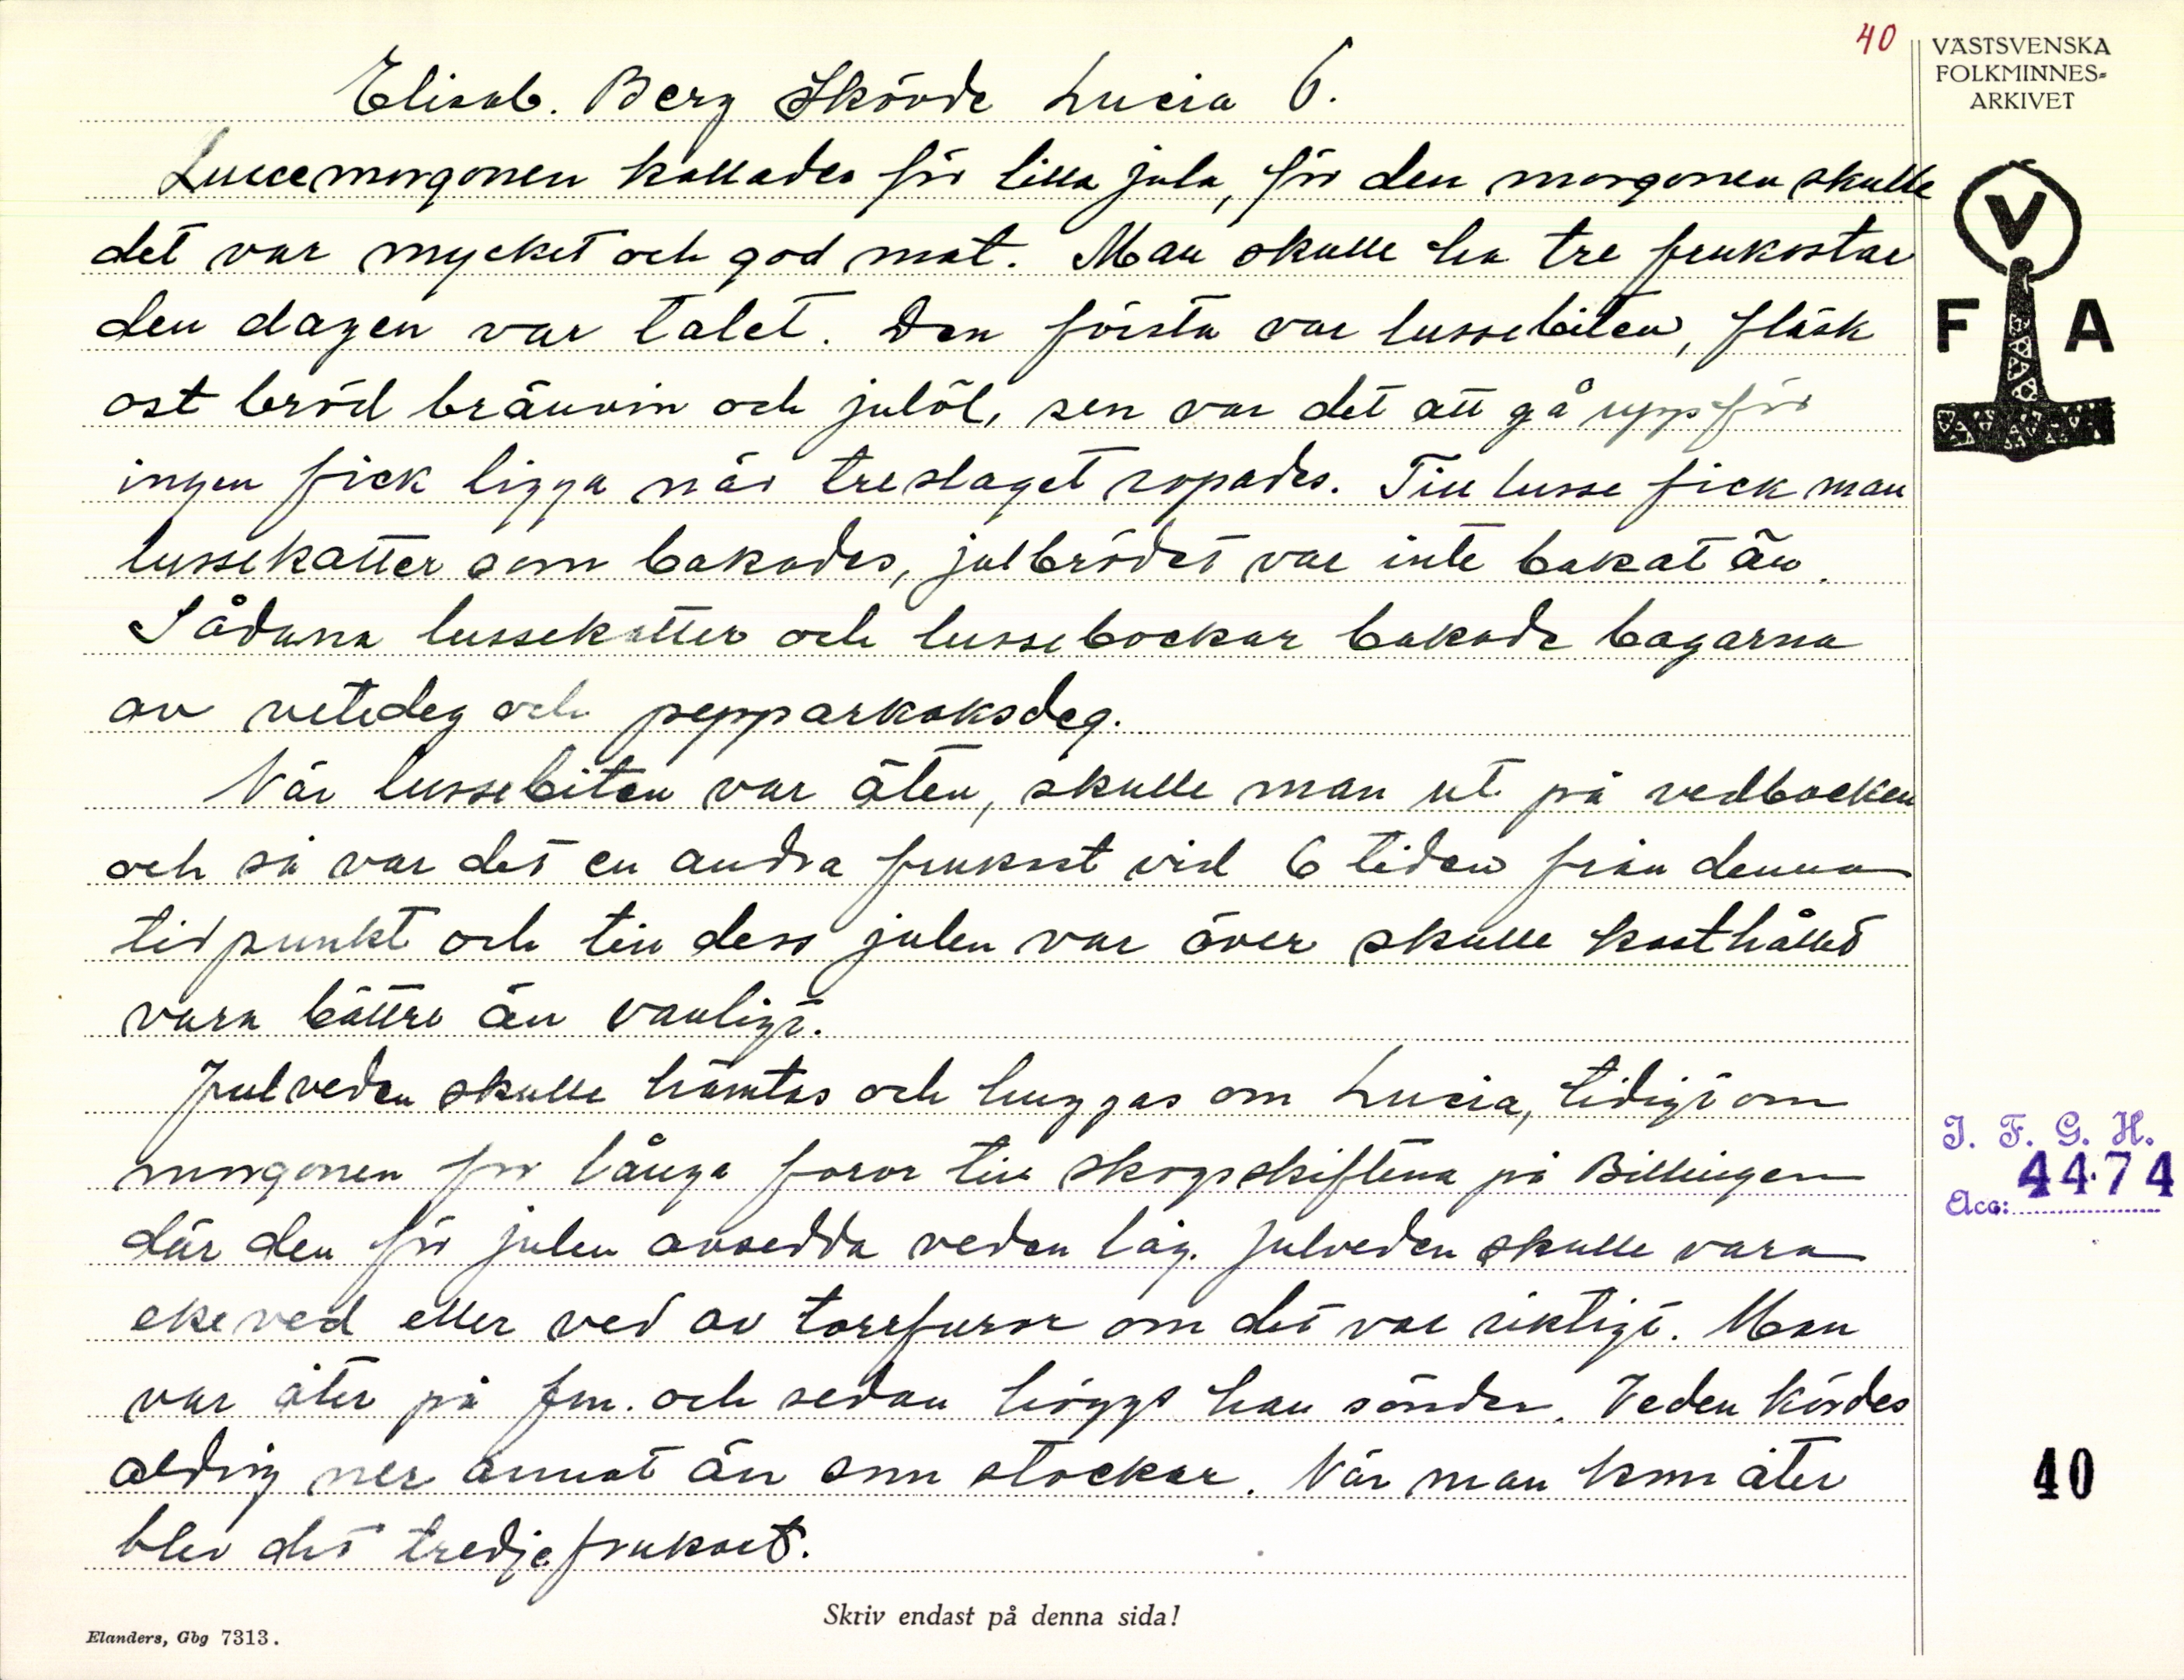 40
VÄSTSVENSKA
FOLKMINNES-
ARKIVET
Elisab. Berg Skövde Lucia 6.
Luccemorgonen kallades för lilla jula, för den morgonen skulle
det var mycket och god mat. Man skulle ha tre frukostar
den dagen var talet. Den första var lussebiten, fläsk
ost bröd brännvin och julöl, sen var det att gå upp för
ingen fick ligga när treslaget ropades. Till lusse fick man
lussekatter som bakades, julbrödet var inte bakat än.
Sådana lussekatter och lussebockar bakade bagarna
av vetedeg och pepparkaksdeg.
När lussebiten var äten, skulle man ut på vedbacken
och så var det en andra frukost vid 6 tiden från denna
tidpunkt och till dess julen var över skulle kosthållet
vara bättre än vanligt.
Julveden skulle hämtas och huggas om Lucia, tidigt om
morgonen for långa foror till skogsskiftena på Billingen
där den för julen avsedda veden låg. Julveden skulle vara
ekeved eller ved av torrfuror om det var riktigt. Man
var åter på fm. och sedan höggs han sönder. Veden kördes
aldrig ner annat än som stockar. När man kom åter
blev det tredje frukost.
V
F A
I. F. G. H.
Acc: 4474
40
Skriv endast på denna sida!
Elanders, Gbg 7313.